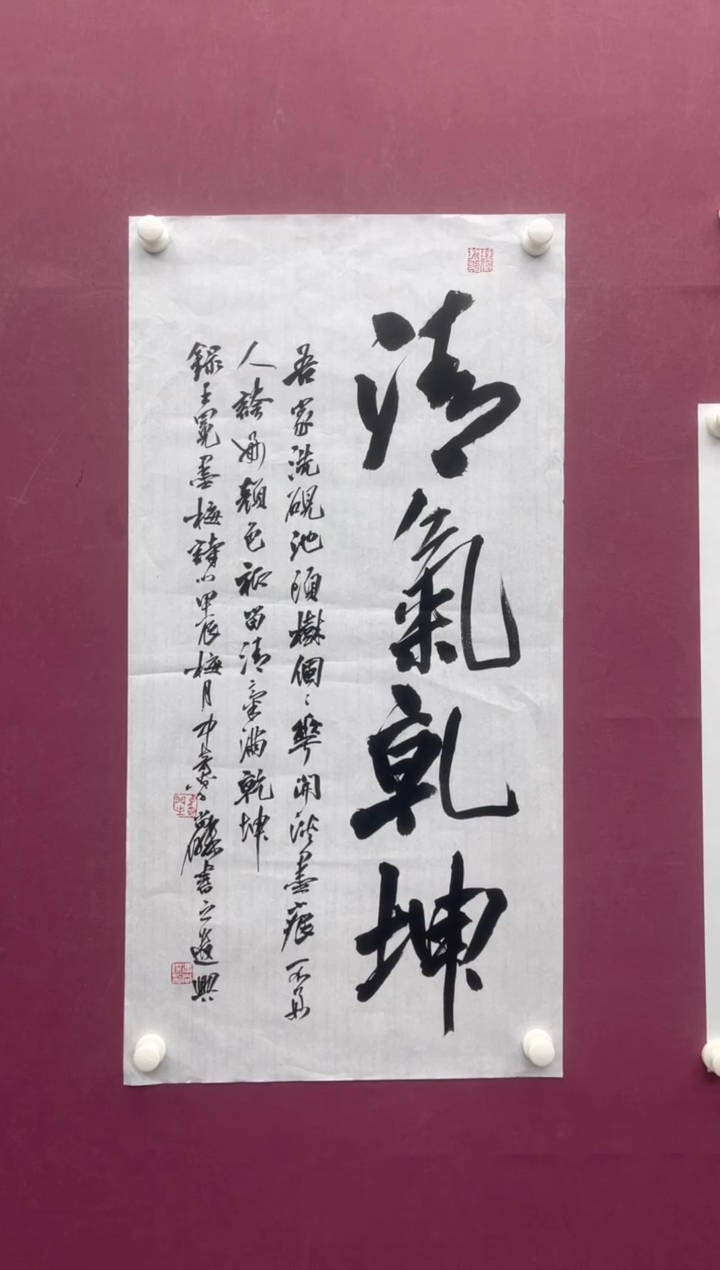 清氣乾坤
吾家洗硯池頭樹個〻華開淡墨痕不要
人誇好顏色祇留清氣滿乾坤
錄王冕墨梅詩以甲辰梅月 書之遣興